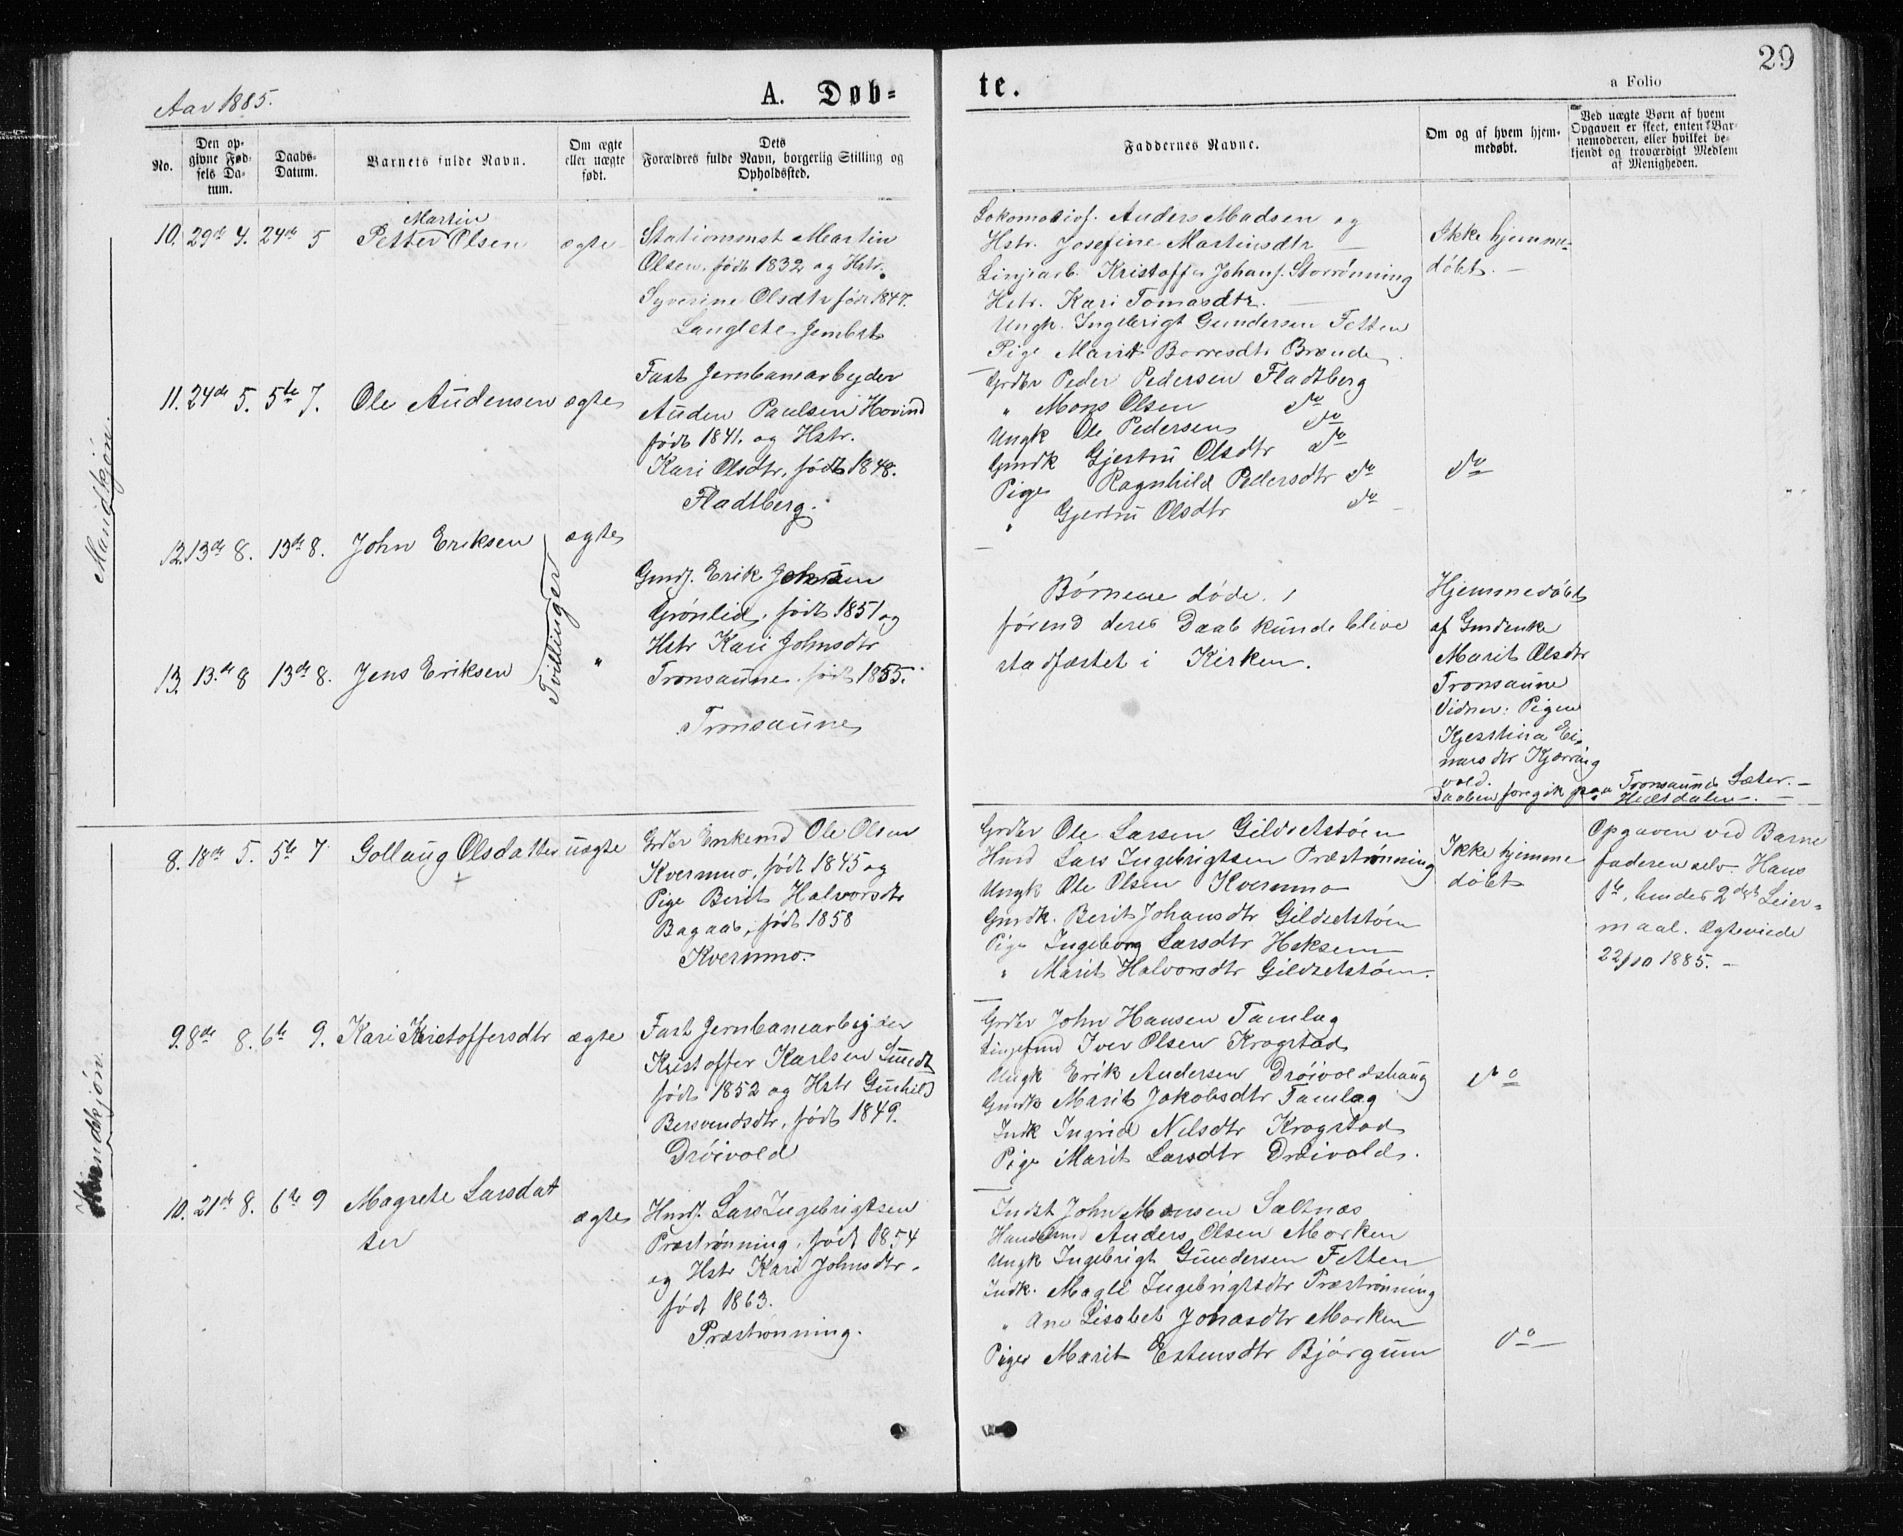 29
Aar 1885.
A. Døb-
te.
a Folio
No.
Den op-
givne Fød-
sels Da-
tum.
Daabs-
Datum.
Barnets fulde Navn.
Om ægte
eller uægte
født.
Dets
Forældres fulde Navn, borgerlig Stilling og
Opholdssted.
Faddernes Navne.
Om og af hvem hjem-
medøbt.
Ved uægte Børn af hvem
Opgaven er skeet, enten Bar-
nemoderen, eller hvilket be-
kjendt og troværdigt Medlem
af Menigheden.
Mandkjøn.
10. 29de 4. 24de 5
Martin
Petter Olsen
ægte
Stationsmst Martin
Olsen, født 1832 og Hstr.
Syverine Olsdtr født 1847.
Langlete Jernbst
Lokomotivf. Anders Madsen og
Hstr. Josefine Martinsdtr
Linjearb. Kristoffer Johans. Storrønning
Hstr. Kari Tomasdtr.
Ungk. Ingebrigt Gundersen Fetten
Pige Marit Borresdtr Brende
Ikke hjemme-
døbt.
11. 24de 5. 5te 7.
Ole Audensen
ægte
Fast Jernbanearbejder
Auden Paulsen Hovind
født 1841. og Hstr.
Kari Olsdtr, født 1848.
Fladtberg.
Grdbr Peder Pedersen Fladtberg
" Mons Olsen do
Ungk Ole Pedersen do
Gmdk Gjertru Olsdtr do
Pige Ragnhild Pedersdtr do
" Gjertru Olsdtr do
do
12. 13de 8. 13de 8.
John Eriksen
ægte
Tvillinger
Gmdf. Erik Johnsen
Grønlid, født 1851 og
Hstr Kari Johnsdtr
Tronsaune, født 1855.
Tronsaune
13. 13de 8 13de 8.
Jens Eriksen
"
Børnene døde
førend deres Daab kunde blive
stadfæstet i Kirken.
Hjemmedøbt
af Gmdenke
Marit Olsdtr
Tronsaune
Vidner: Pigen
Kjerstina Ei-
narsdtr Kjærring
vold.
Daaben foregik paa Tronsaunes Sæter.
Hulsdalen.
Kvindekjøn.
8. 18de 5. 5te 7
Gollaug Olsdatter
uægte
Grdbr Enkemd Ole Olsen
Kvernmo, født 1845 og
Pige Berit Halvorsdtr
Bagaas, født 1858
Kvernmo.
Grdbr Ole Larsen Gildsetstøen
Hmd Lars Ingebrigtsen Præstrønning
Ungk Ole Olsen Kvernmo
Gmdk. Berit Johansdtr Gildsetstøen
Pige Ingeborg Larsdtr Heksem
" Marit Halvorsdtr Gildsetstøen.
Ikke hjemme
døbt
Opgaven ved Barne
faderen selv. Hans
1te, hendes 2det Leier-
maal. Ægteviede
22/10 1885.
9. 8de 8. 6te 9.
Kari Kristoffersdtr
ægte
Fast Jernbanearbejder
Kristoffer Karlsen Smedt
født 1852 og Hstr Gunhild
Bersvendsdtr, født 1849.
Drøivold
Grdbr John Hansen Tamlag
Linjefmd Iver Olsen Krogstad
Ungk Erik Andersen Drøivoldshaug
Gmdk Marit Jakobsdtr Tamlag
Indk Ingrid Nilsdtr Krogstad
Pige Marit Larsdtr Drøivold.
do
10. 21de 8. 6te 9
Magrete Larsdat
ter
ægte
Hmdf. Lars Ingebrigtsen
Præstrønning, født 1854
og Hstr Kari Johnsdtr.
født 1863.
Præstrønning.
Indst John Monsen Saltnæs
Handelsmd Anders Olsen Morken
Ungk Ingebrigt Gundersen Fetten
Indk. Magli Ingebrigtsdtr Præstrønning
" Ane Lisabet Jonasdtr Morken
Piger Marit Estensdtr Bjørgum
do